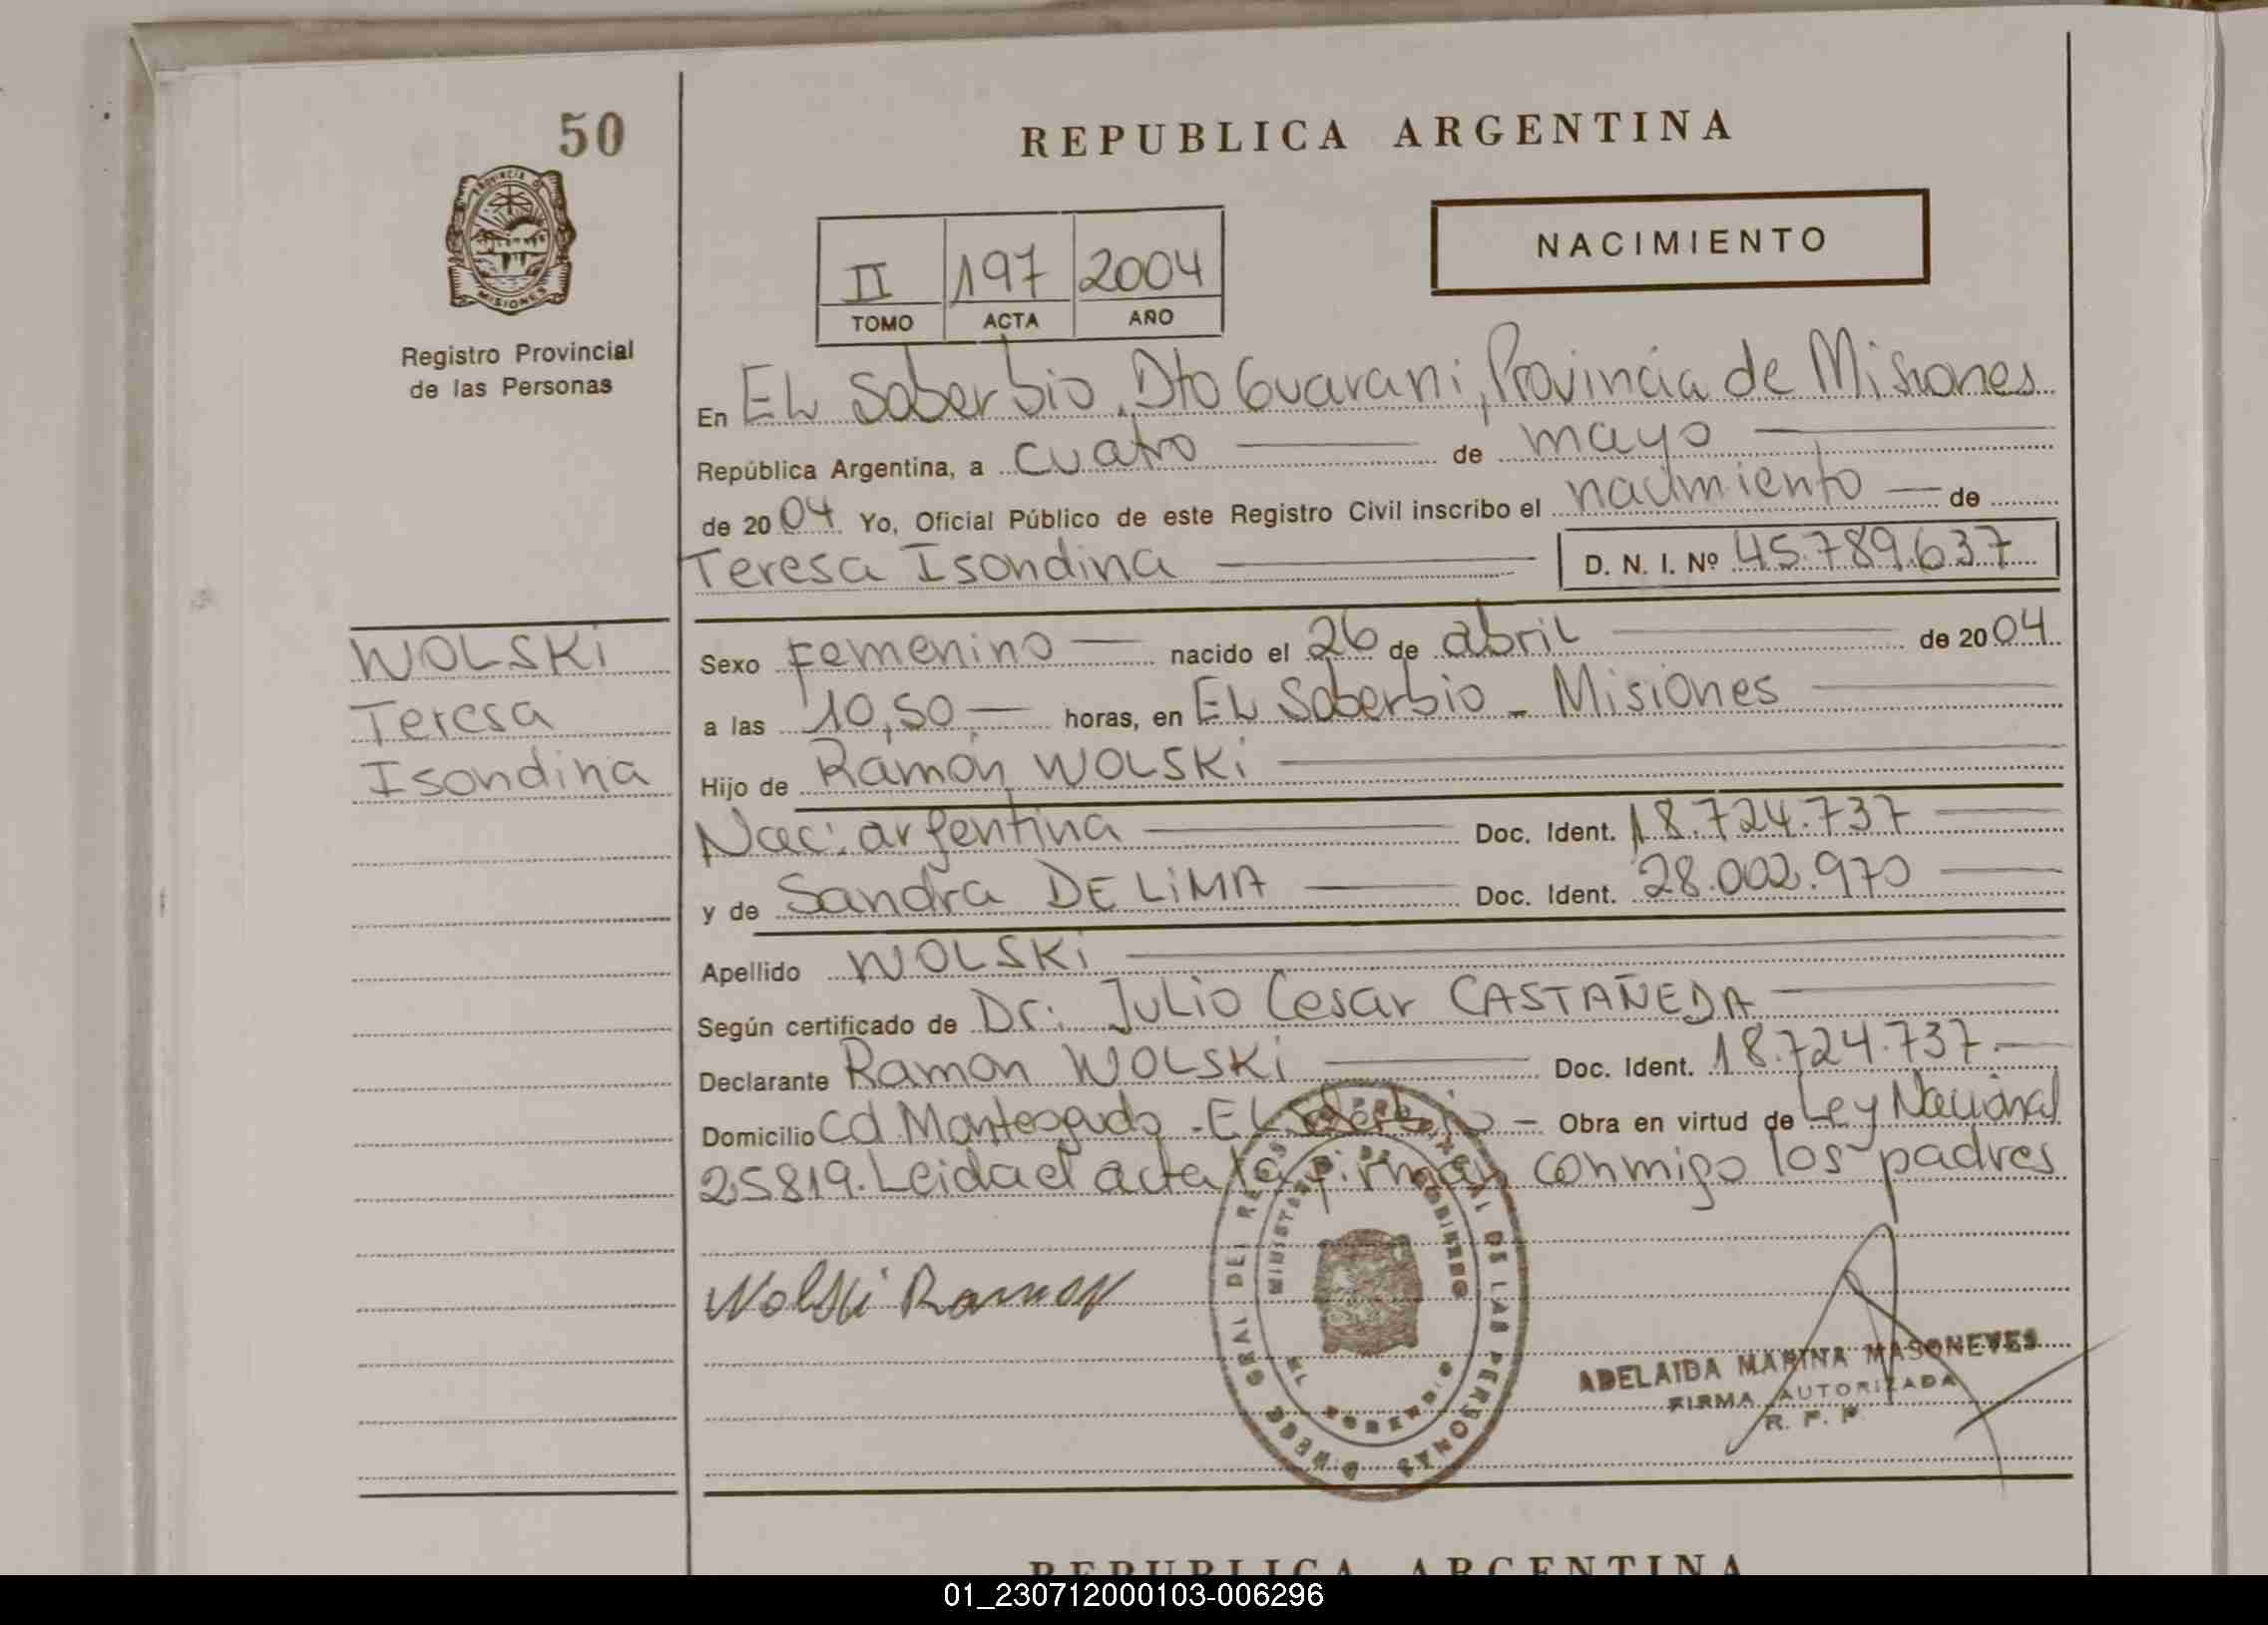 50
REPUBLICA ARGENTINA
PROVINCIA DE
MISIONES
NACIMIENTO
II 197 2004
TOMO ACTA AÑO
Registro Provincial
de las Personas
En EL Soberbio, Dto Guarani, Provincia de Misiones
República Argentina, a cuatro de mayo
de 2004 Yo, Oficial Público de este Registro Civil inscribo el nacimiento de
Teresa Isondina D. N. I. Nº 45.789.637
WOLSKi
Teresa
Isondina
Sexo Femenino nacido el 26 de abril de 2004
a las 10,50 horas, en EL Soberbio - Misiones
Hijo de Ramón WOLSKi
Nac: argentina Doc. Ident. 18.724.737
y de Sandra DE LiMA Doc. Ident. 28.002.970
Apellido WOLSKi
Según certificado de Dr: Julio Cesar CASTAÑEDA
Declarante Ramon WOLSKi Doc. Ident. 18.724.737.
Domicilio Cd Monteagudo - EL Soberbio - Obra en virtud de Ley Nacional
25819. Leida el acta la firman conmigo los padres
Wolski Ramon
GRAL DEL DE LAS PERSONAS
MINISTERIO DE GOBIERNO
EL SOBERBIO
ADELAIDA MARINA MASONEVES
FIRMA AUTORIZADA
R. P. P.
REPUBLICA ARGENTINA
01_230712000103-006296